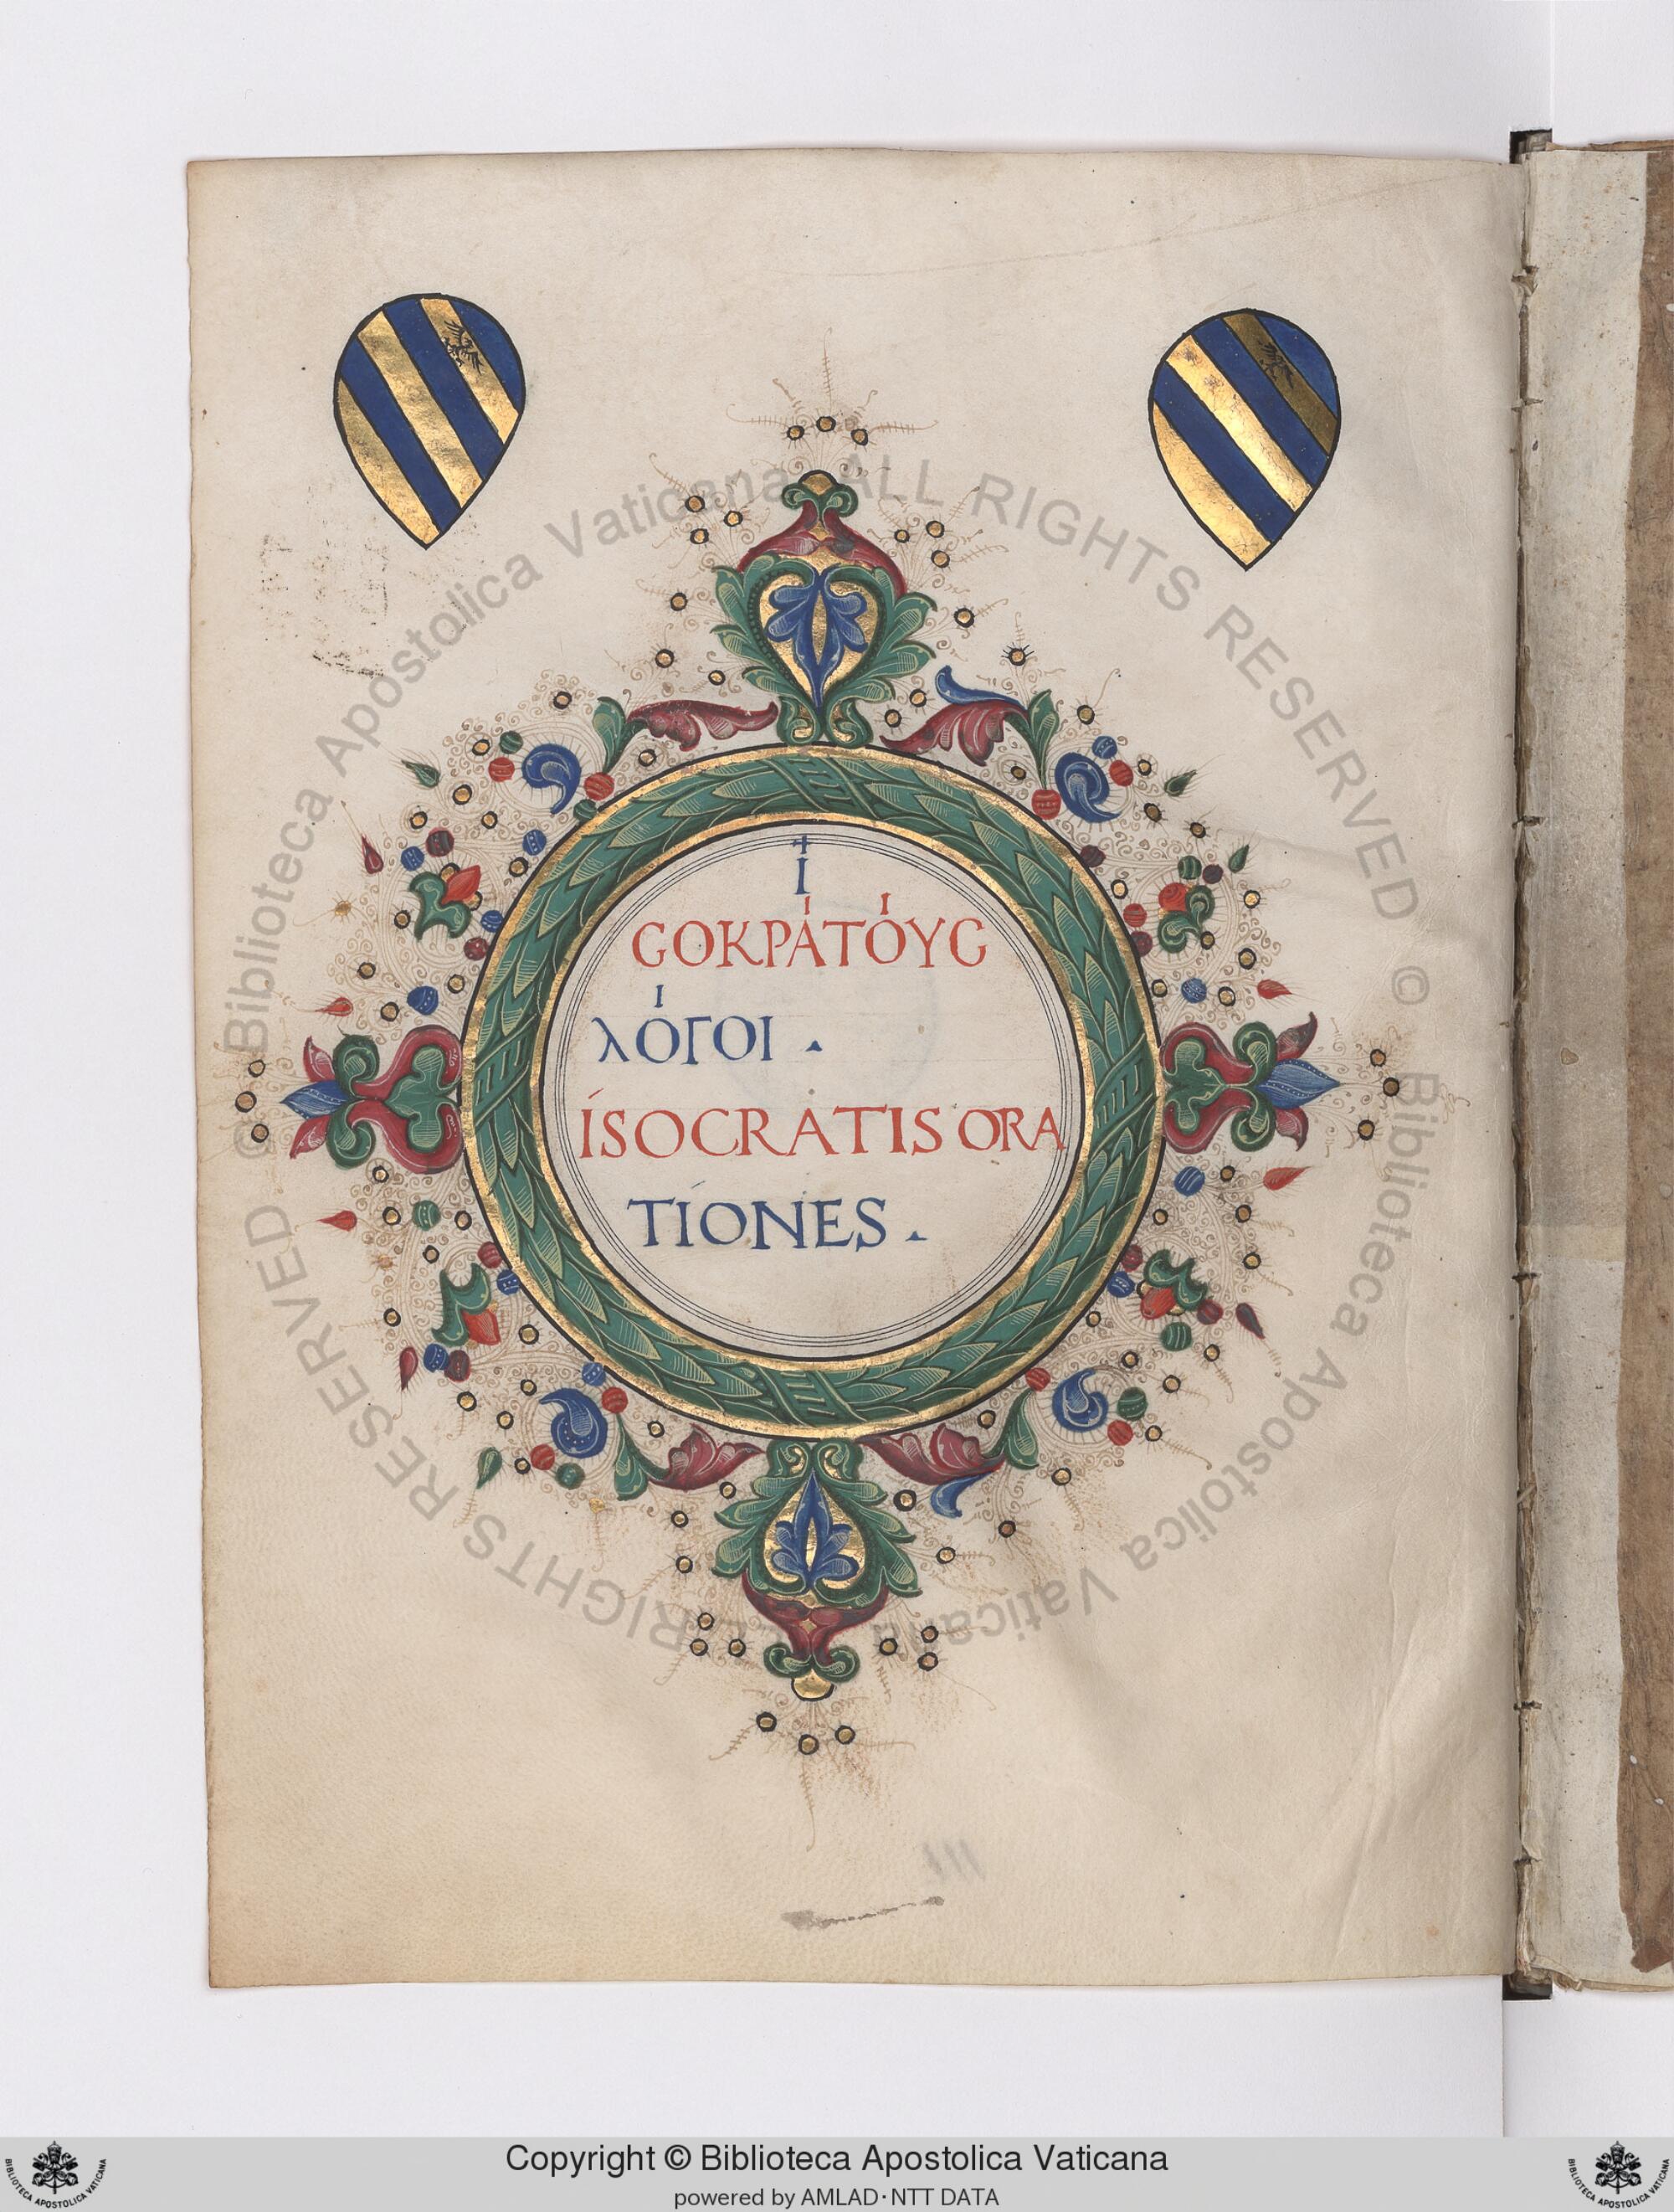 Ἰ
ϹΟΚΡΆΤΌΥϹ
λΌΓΟΙ .
ÍSOCRATIS ORA
TÍONES .
© Biblioteca Apostolica Vaticana ALL RIGHTS RESERVED © Biblioteca Apostolica Vaticana ALL RIGHTS RESERVED
Copyright © Biblioteca Apostolica Vaticana
powered by AMLAD·NTT DATA
BIBLIOTECA APOSTOLICA VATICANA
BIBLIOTECA APOSTOLICA VATICANA